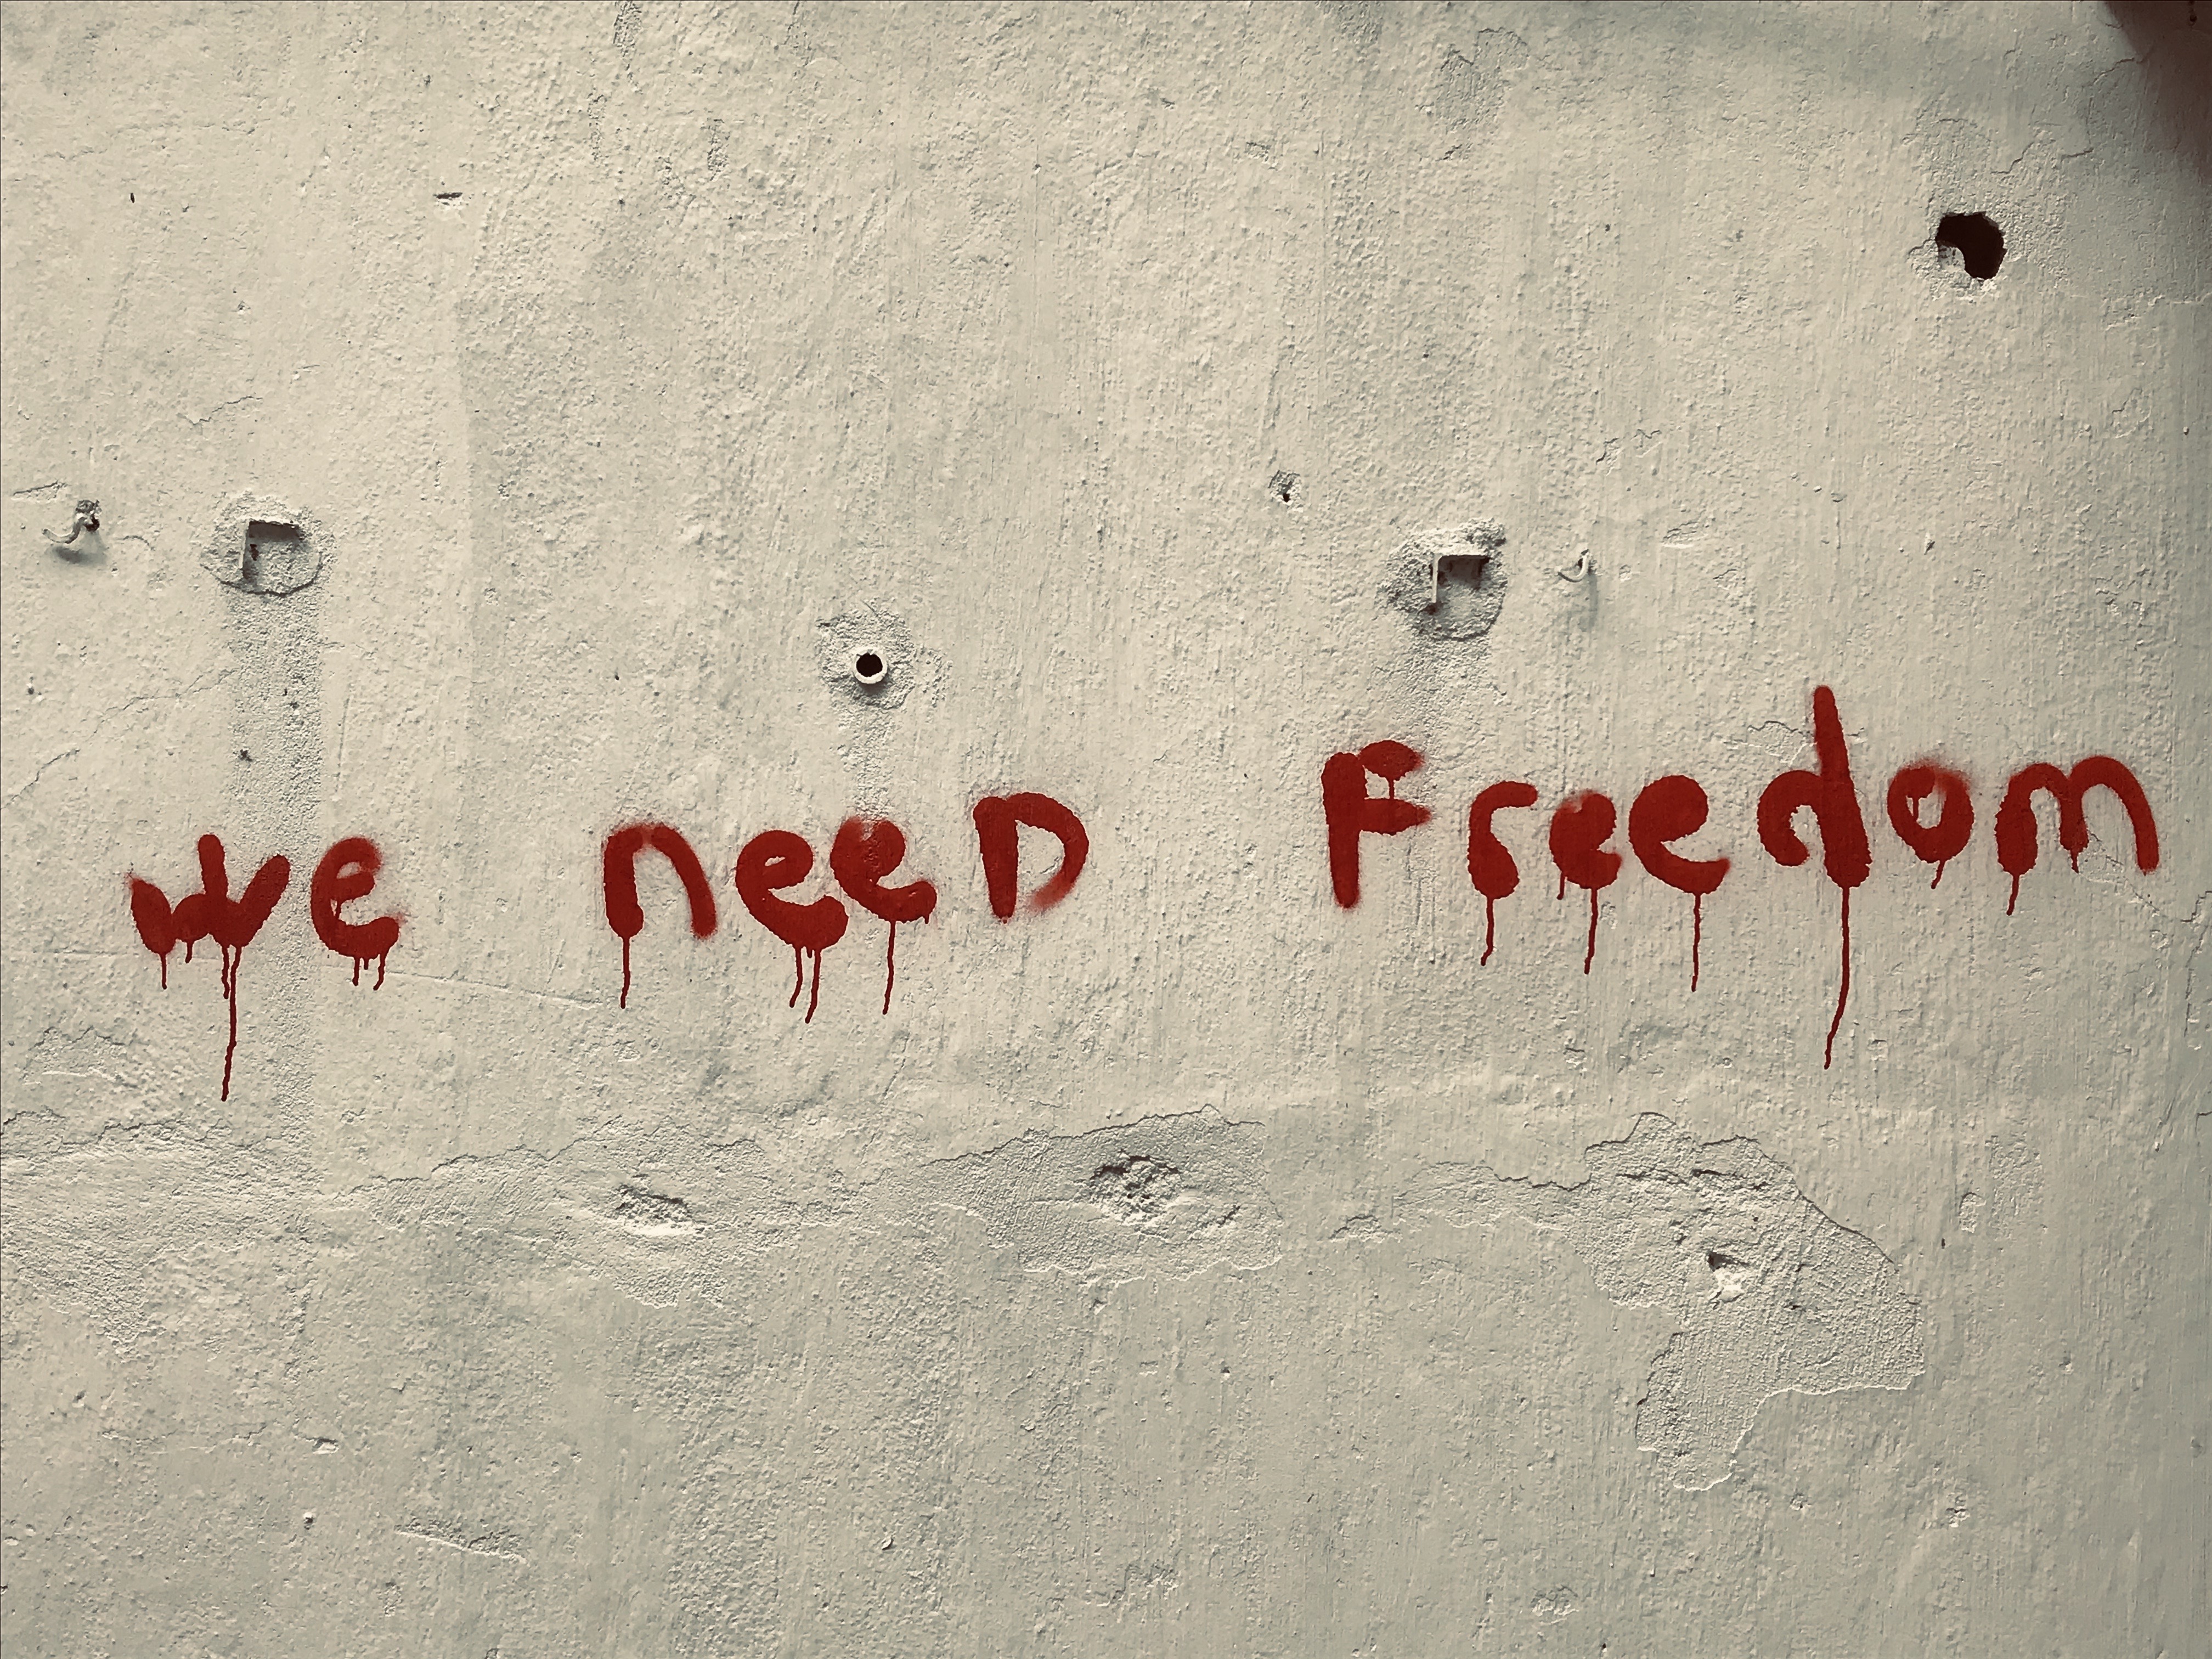 we neeD Freedom